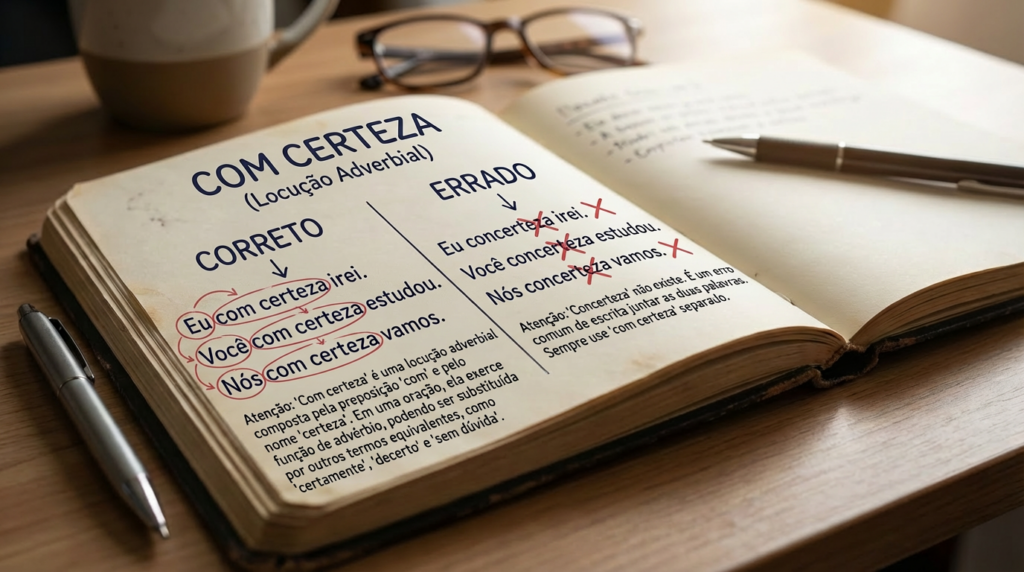 COM CERTEZA
(Locução Adverbial)
CORRETO
Eu com certeza irei.
Você com certeza estudou.
Nós com certeza vamos.
Atenção: 'Com certeza' é uma locução adverbial
composta pela preposição 'com' e pelo
nome 'certeza'. Em uma oração, ela exerce
função de advérbio, podendo ser substituída
por outros termos equivalentes, como
'certamente', 'decerto' e 'sem dúvida'.
ERRADO
Eu concerteza irei.
Você concerteza estudou.
Nós concerteza vamos.
Atenção: 'Concerteza' não existe. É um erro
comum de escrita juntar as duas palavras.
Sempre use 'com certeza' separado.